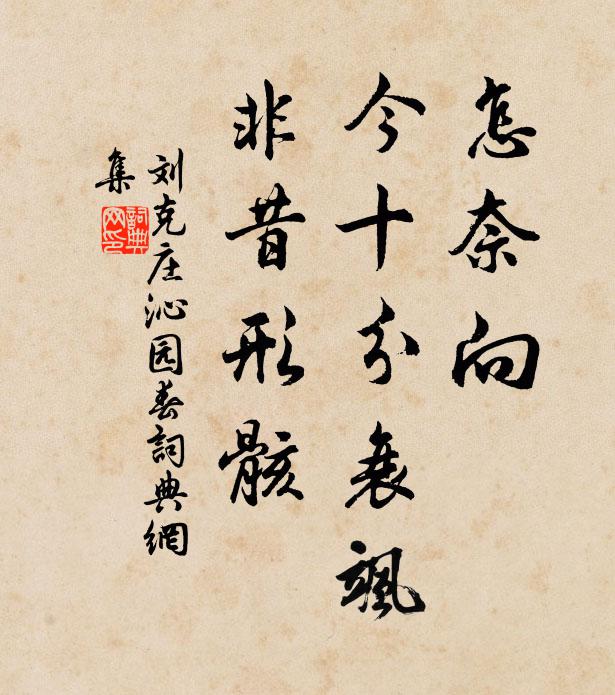 怎奈向
今十分衰飒
非昔形骸
刘克庄沁园春詞典網
集
詞典
网印